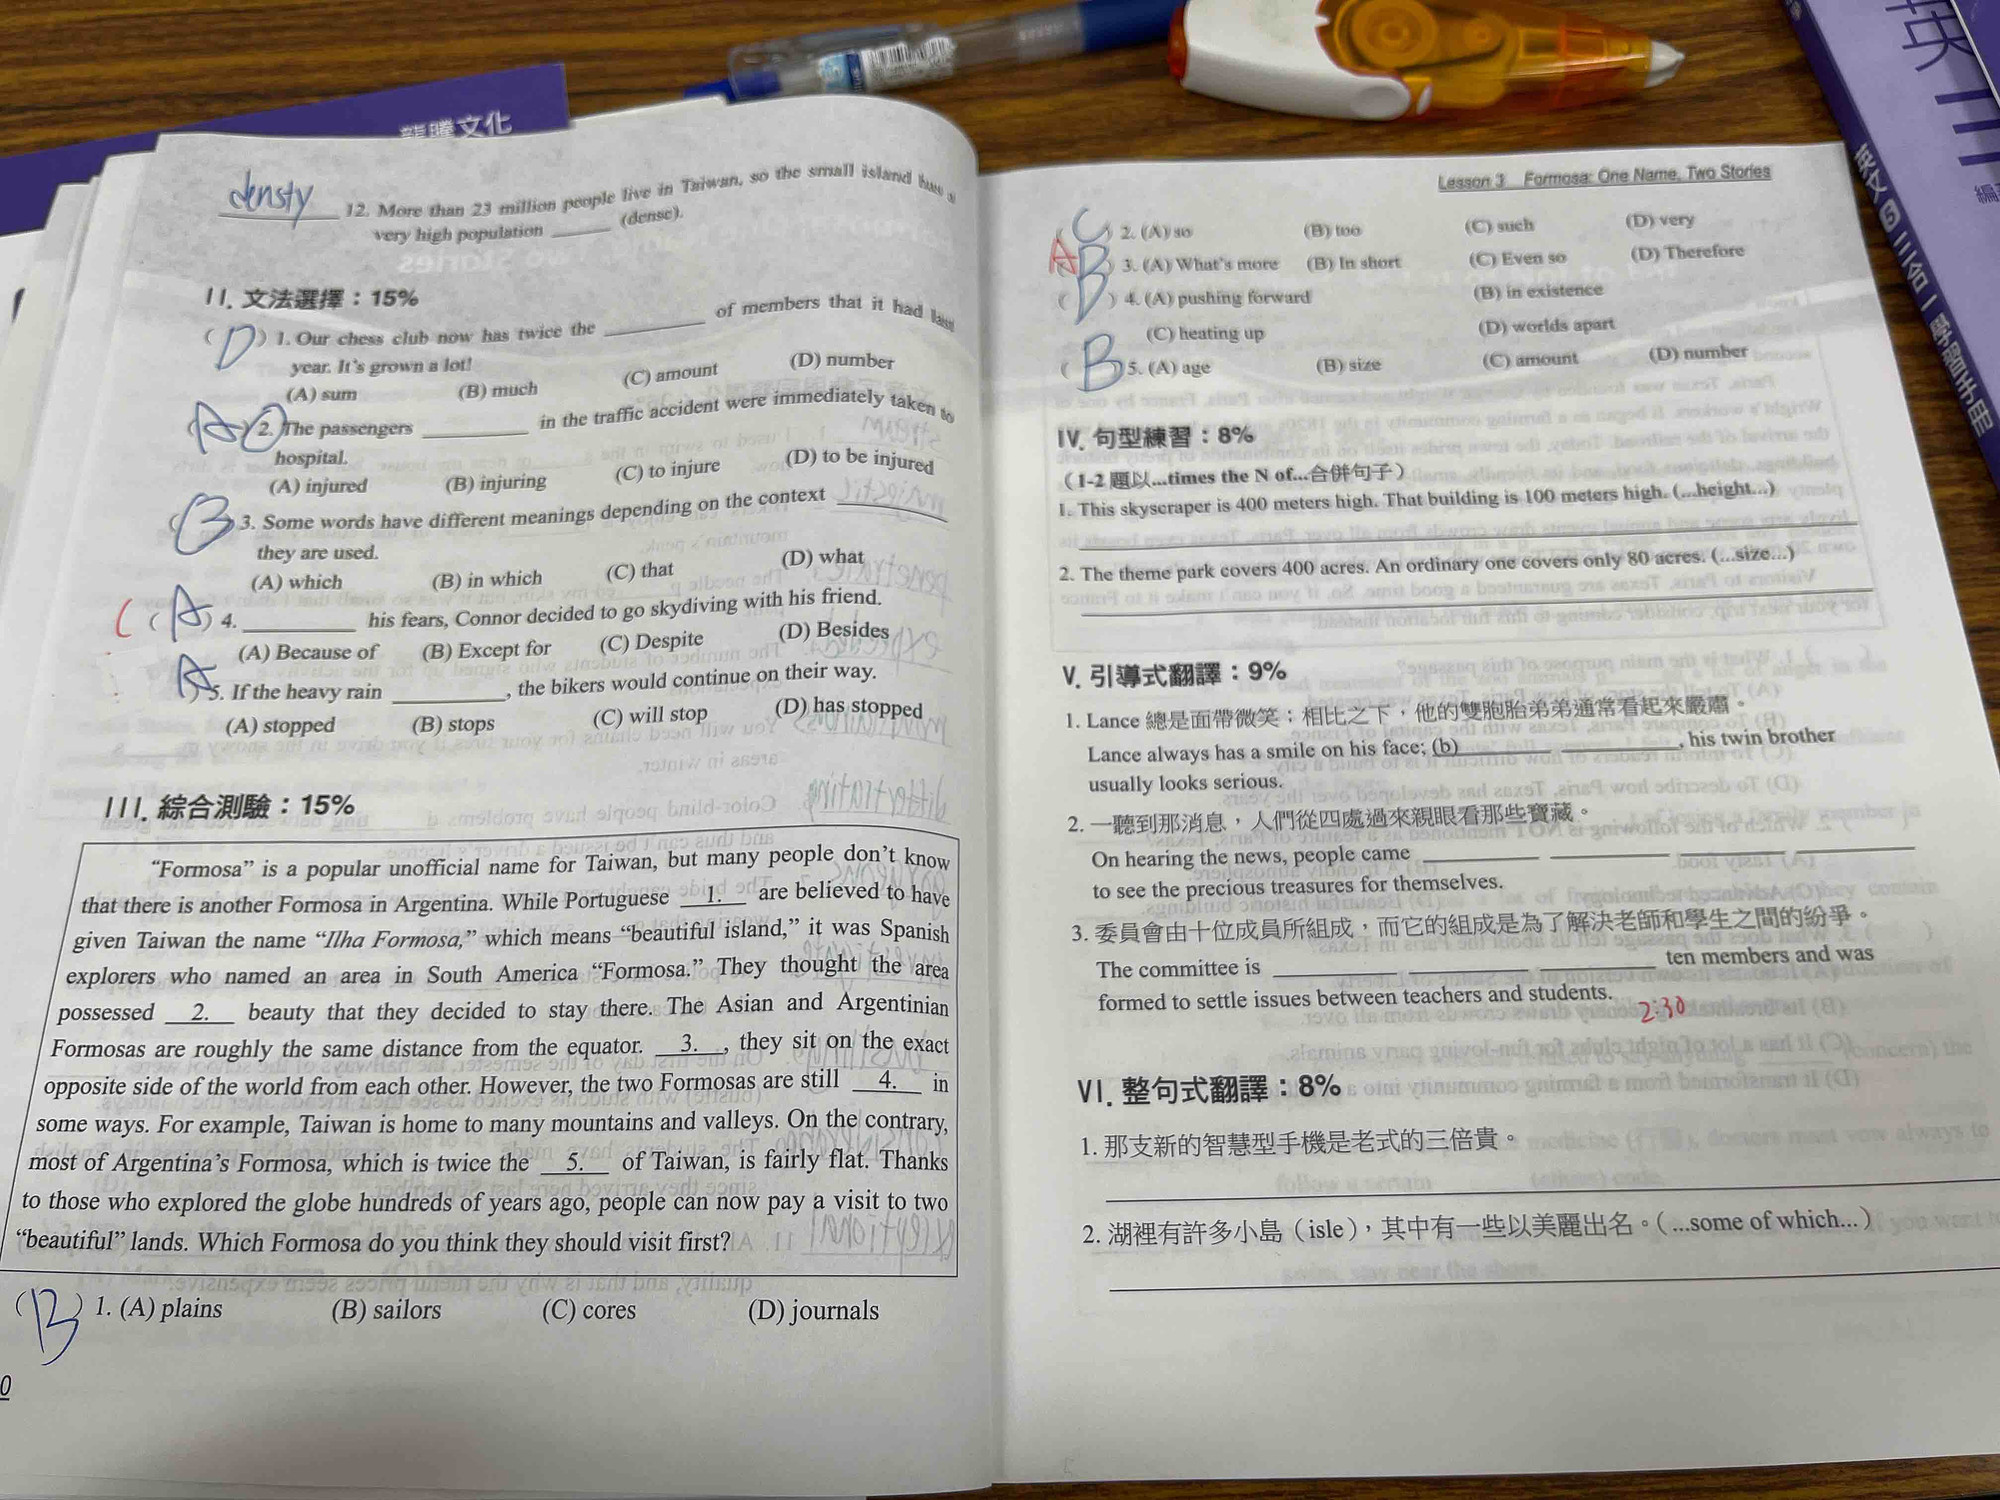 龍騰文化
英
三
編
densty
12. More than 23 million people live in Taiwan, so the small island has a
very high population ______ (dense).
II. 文法選擇：15%
( D ) 1. Our chess club now has twice the ______ of members that it had last
year. It's grown a lot!
(A) sum (B) much (C) amount (D) number
( A ) 2. The passengers ______ in the traffic accident were immediately taken to
hospital.
(A) injured (B) injuring (C) to injure (D) to be injured
( B ) 3. Some words have different meanings depending on the context ______
they are used.
(A) which (B) in which (C) that (D) what
C ( A ) 4. ______ his fears, Connor decided to go skydiving with his friend.
(A) Because of (B) Except for (C) Despite (D) Besides
( A ) 5. If the heavy rain ______, the bikers would continue on their way.
(A) stopped (B) stops (C) will stop (D) has stopped
III. 綜合測驗：15%
“Formosa” is a popular unofficial name for Taiwan, but many people don't know
that there is another Formosa in Argentina. While Portuguese 1. are believed to have
given Taiwan the name “Ilha Formosa,” which means “beautiful island,” it was Spanish
explorers who named an area in South America “Formosa.” They thought the area
possessed 2. beauty that they decided to stay there. The Asian and Argentinian
Formosas are roughly the same distance from the equator. 3. , they sit on the exact
opposite side of the world from each other. However, the two Formosas are still 4. in
some ways. For example, Taiwan is home to many mountains and valleys. On the contrary,
most of Argentina's Formosa, which is twice the 5. of Taiwan, is fairly flat. Thanks
to those who explored the globe hundreds of years ago, people can now pay a visit to two
“beautiful” lands. Which Formosa do you think they should visit first?
( B ) 1. (A) plains (B) sailors (C) cores (D) journals
0
Lesson 3 Formosa: One Name, Two Stories
( C ) 2. (A) so (B) too (C) such (D) very
A ( B ) 3. (A) What's more (B) In short (C) Even so (D) Therefore
( D ) 4. (A) pushing forward (B) in existence
(C) heating up (D) worlds apart
( B ) 5. (A) age (B) size (C) amount (D) number
IV. 句型練習：8%
（1-2 題以...times the N of...合併句子）
1. This skyscraper is 400 meters high. That building is 100 meters high. (...height...)
2. The theme park covers 400 acres. An ordinary one covers only 80 acres. (...size...)
V. 引導式翻譯：9%
1. Lance 總是面帶微笑；相比之下，他的雙胞胎弟弟通常看起來嚴肅。
Lance always has a smile on his face; (b)______ ______, his twin brother
usually looks serious.
2. 一聽到那消息，人們從四處過來親眼看那些寶藏。
On hearing the news, people came ______ ______ ______ ______
to see the precious treasures for themselves.
3. 委員會由十位成員所組成，而它的組成是為了解決老師和學生之間的紛爭。
The committee is ______ ______ ______ ten members and was
formed to settle issues between teachers and students.
2:30
VI. 整句式翻譯：8%
1. 那支新的智慧型手機是老式的三倍貴。
2. 湖裡有許多小島（isle），其中有一些以美麗出名。（...some of which...）